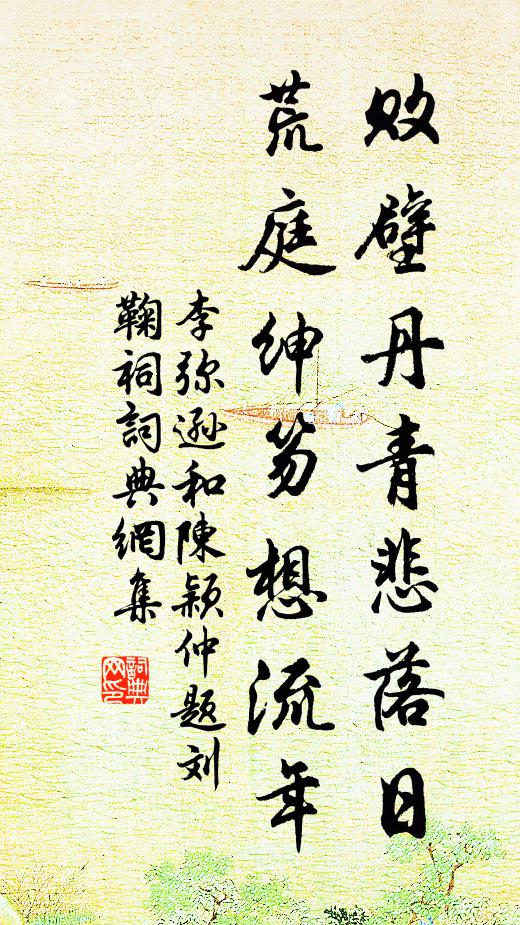 败壁丹青悲落日
荒庭绅笏想流年
李弥逊和陳颖仲题刘
鞠祠詞典網集
詞典网印